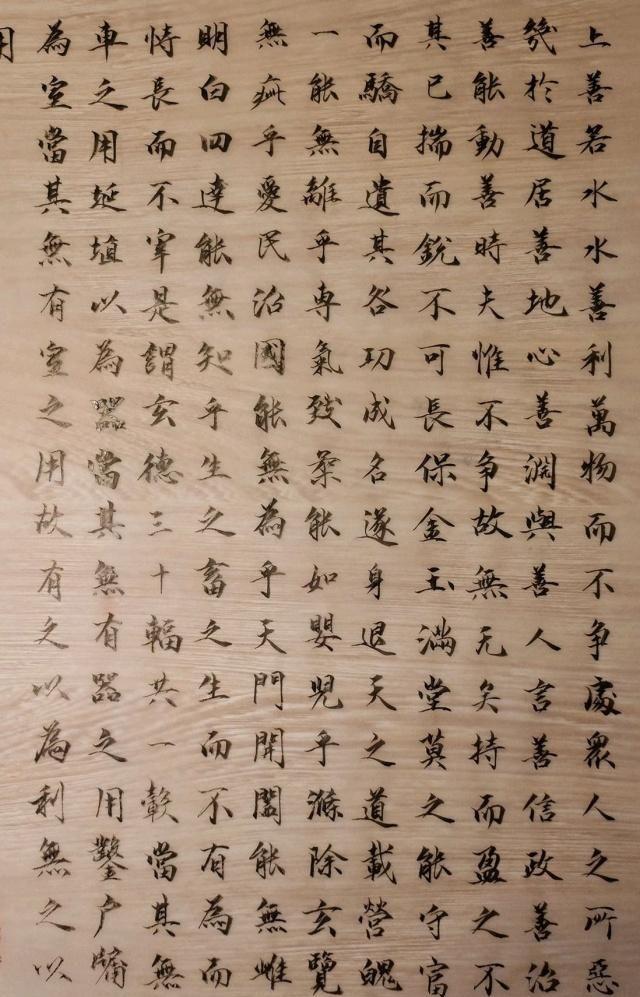 上善若水水善利萬物而不争處眾人之所惡
幾於道居善地心善淵與善人言善信政善治
善能動善時夫惟不争故無尤矣持而盈之不
其已揣而銳不可長保金玉滿堂莫之能守富
而驕自遺其咎功成名遂身退天之道載營魄
一能無離乎專氣致柔能如嬰兒乎滌除玄覽
無疵乎愛民治國能無為乎天門開闔能無雌
明白四達能無知乎生之畜之生而不有為而
恃長而不宰是謂玄德三十輻共一轂當其無
車之用埏埴以為器當其無有器之用鑿户牖
為室當其無有室之用故有之以為利無之以
用